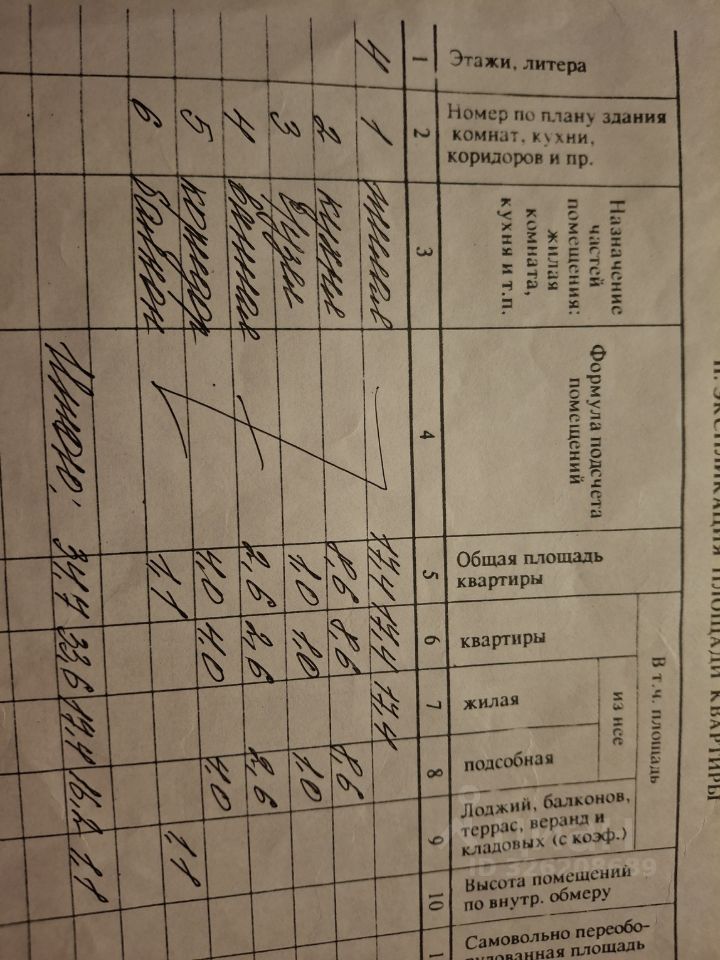 II. ЭКСПЛИКАЦИЯ ПЛОЩАДИ КВАРТИРЫ
Этажи, литера
Номер по плану здания
комнат, кухни,
коридоров и пр.
Назначение
частей
помещения:
жилая
комната,
кухня и т.п.
Формула подсчета
помещений
Общая площадь
квартиры
В т.ч. площадь
квартиры
из нее
жилая
подсобная
Лоджий, балконов,
террас, веранд и
кладовых (с коэф.)
Высота помещений
по внутр. обмеру
Самовольно переобо-
рудованная площадь
1 2 3 4 5 6 7 8 9 10 1
4 1 жилая 17,4 17,4 17,4
2 кухня 8,6 8,6 8,6
3 туалет 1,0 1,0 1,0
4 ванная 2,6 2,6 2,6
5 коридор 4,0 4,0 4,0
6 балкон 1,1 1,1
Итого: 34,7 33,6 17,4 16,2 1,1